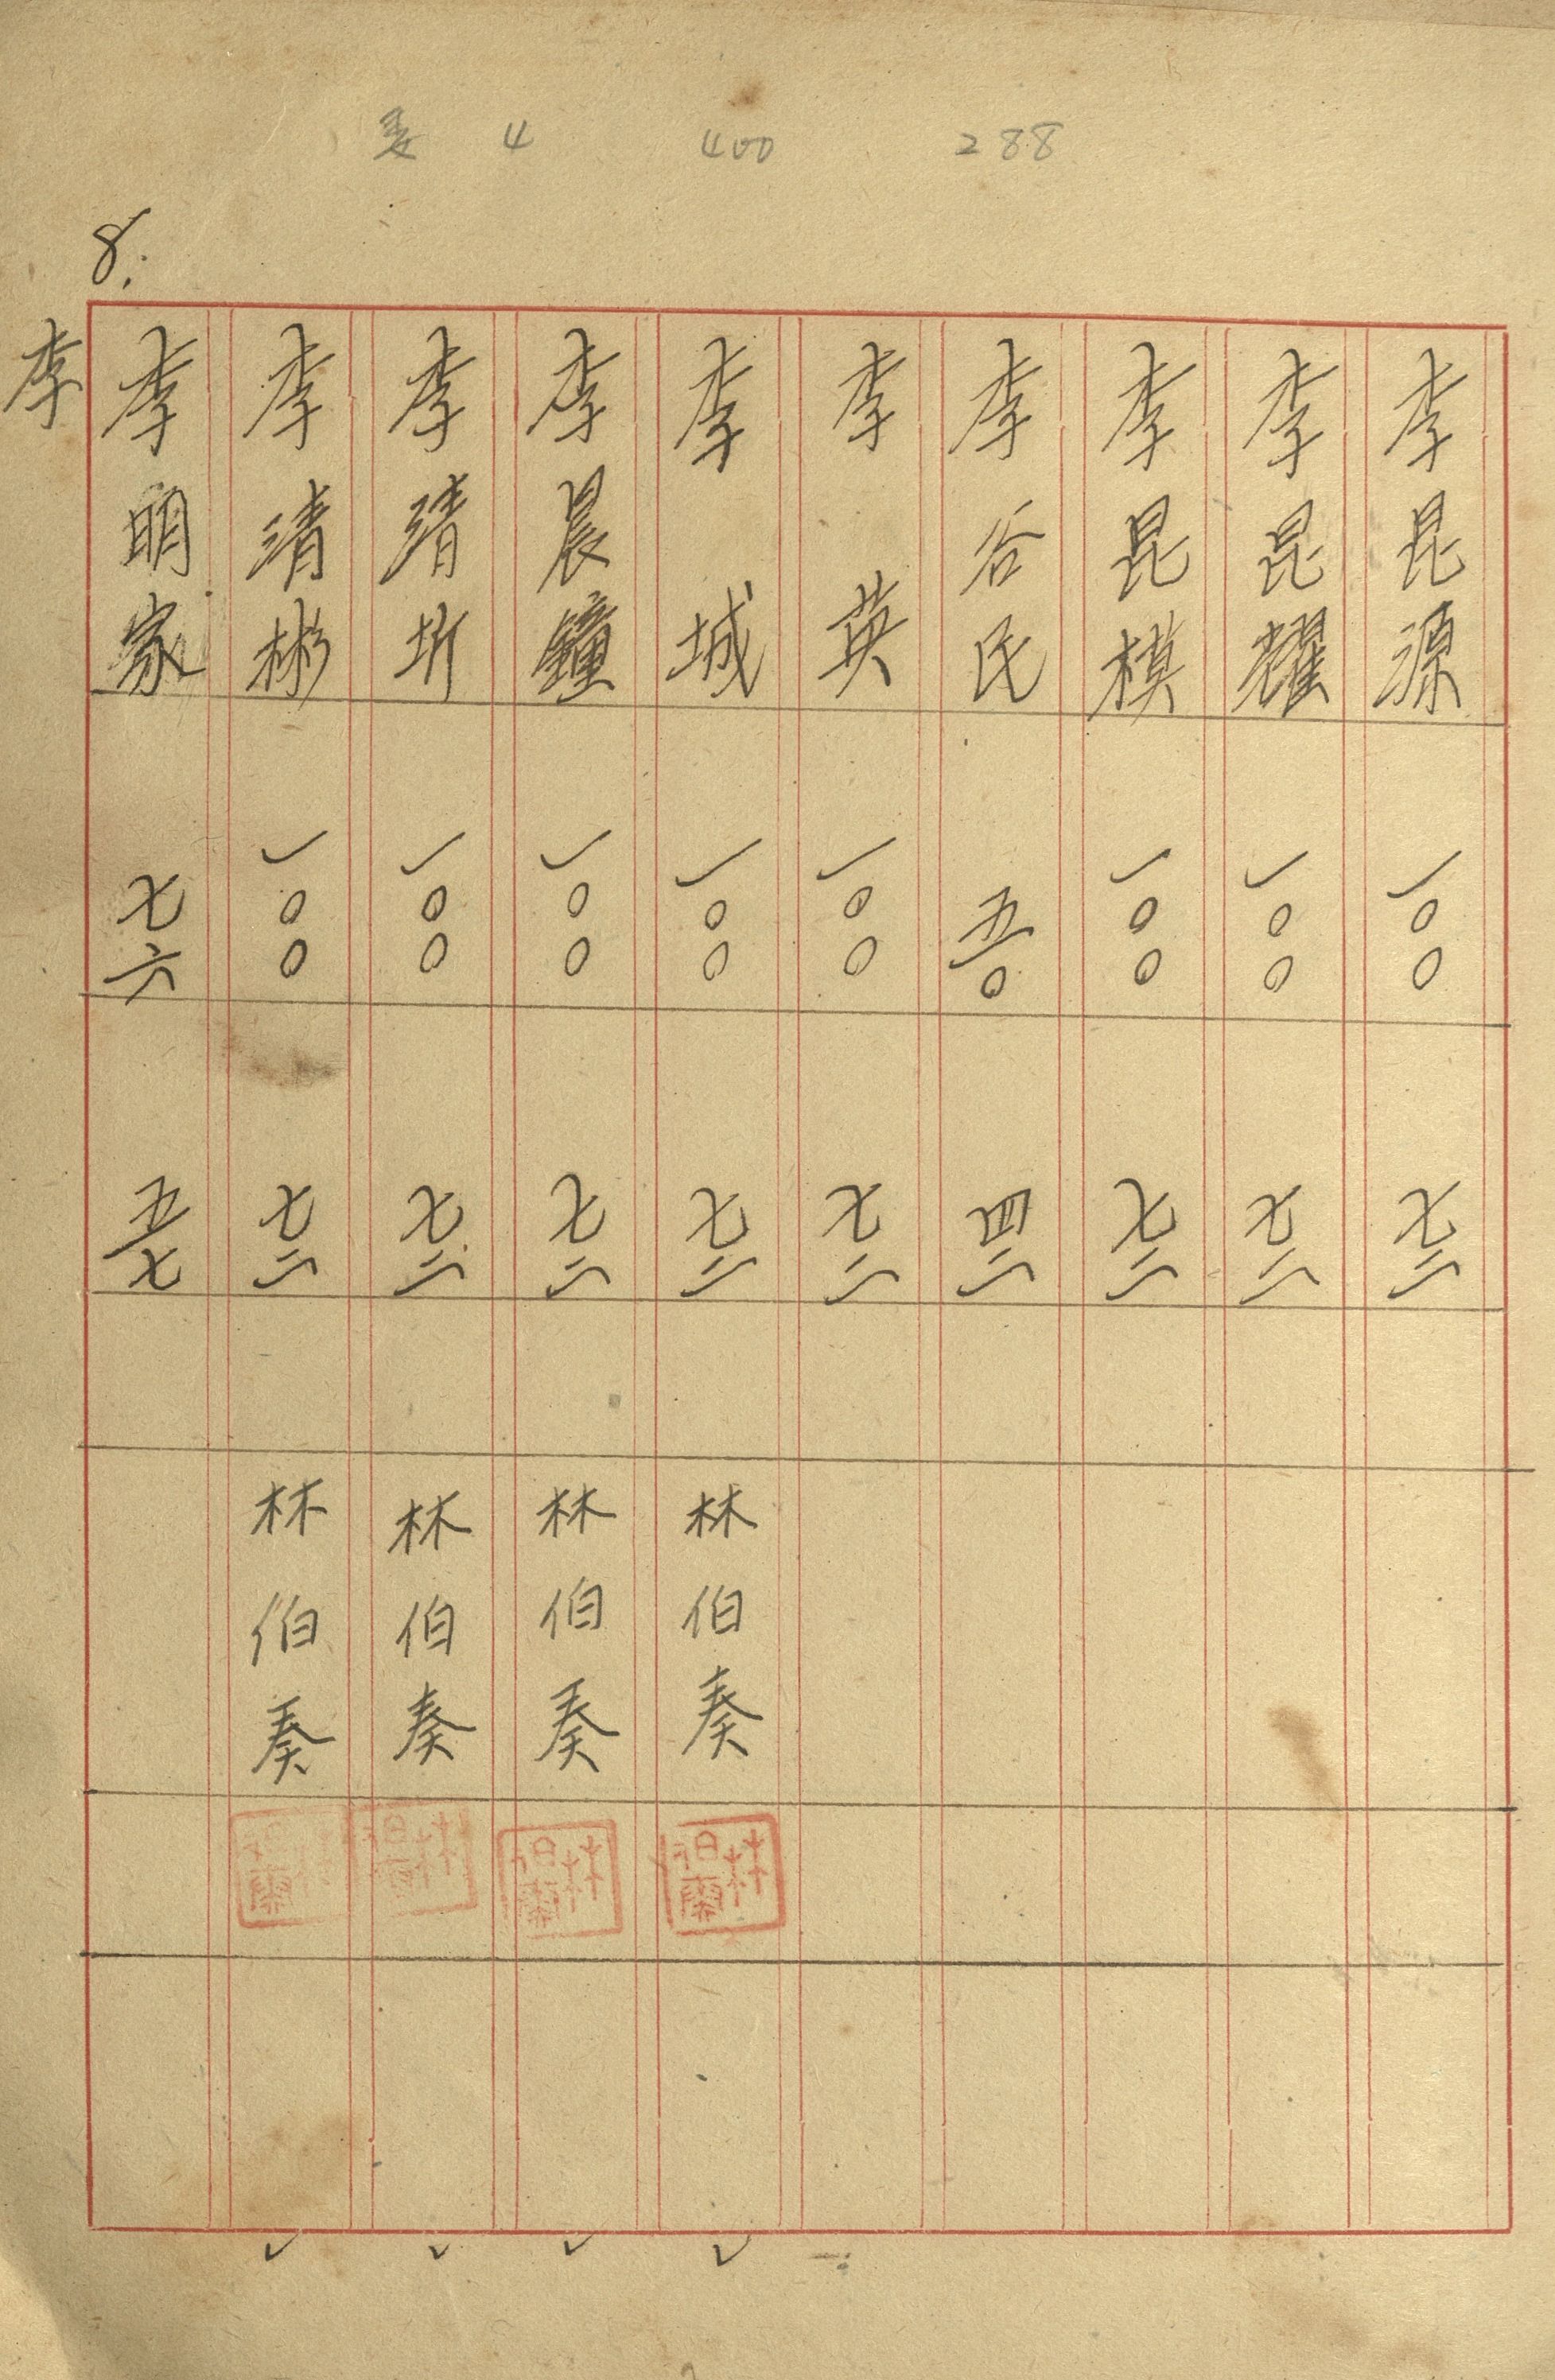 麦 4 400 288
8.
李昆源 一〇〇 七二
李昆耀 一〇〇 七二
李昆模 一〇〇 七二
李谷氏 五〇 四二
李英 一〇〇 七二
李城 一〇〇 七二 林伯奏 林伯奏
李晨鐘 一〇〇 七二 林伯奏 林伯奏
李清圻 一〇〇 七二 林伯奏 林伯奏
李清彬 一〇〇 七二 林伯奏 林伯奏
李明家 七六 五七
李